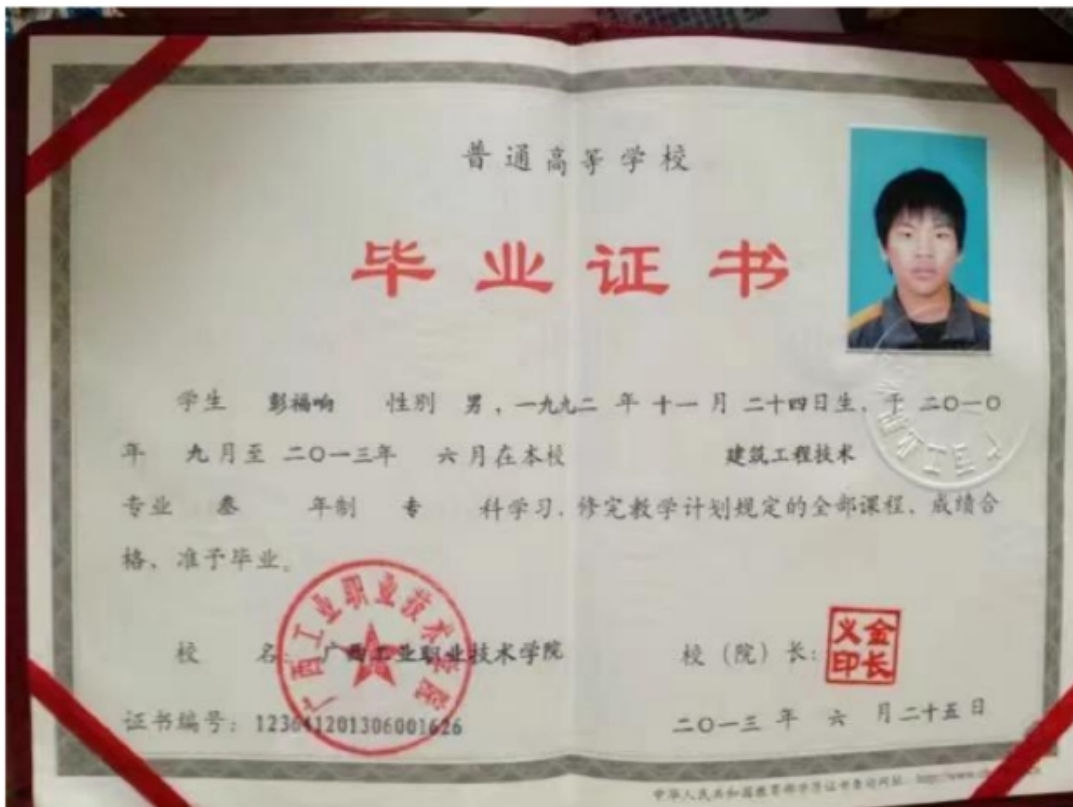 普通高等学校
毕业证书
学生 彭福响 性别 男，一九九二 年 十一 月 二十四日生，于 二〇一〇
年 九月至 二〇一三年 六月在本校 建筑工程技术
专业 叁 年制 专 科学习，修完教学计划规定的全部课程，成绩合
格，准予毕业。
广西工业职业技术学院
校 名：广西工业职业技术学院 校（院）长：
义金
印长
证书编号：123641201306001626 二〇一三 年 六 月二十五日
中华人民共和国教育部学历证书查询网址：http://www.